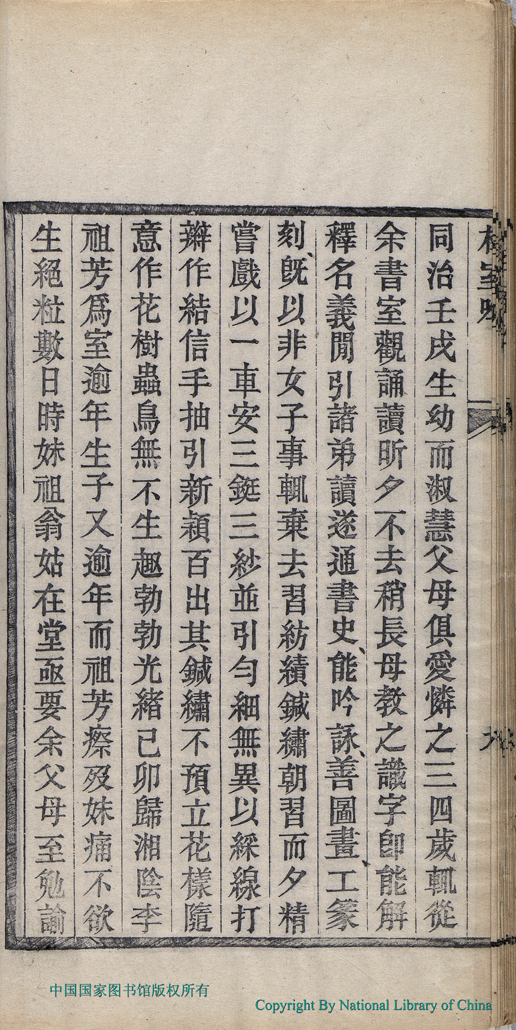 同治壬戌生幼而淑慧父母俱愛憐之三四歲輒從
余書室觀誦讀昕夕不去稍長母教之識字卽能解
釋名義閒引諸弟讀遂通書史能吟詠善圖畫工篆
刻旣以非女子事輒棄去習紡績鍼繡朝習而夕精
嘗戲以一車安三鋌三紗並引勻細無異以綵線打
辮作結信手抽引新穎百出其鍼繡不預立花樣隨
意作花樹蟲鳥無不生趣勃勃光緒己卯歸湘陰李
祖芳爲室逾年生子又逾年而祖芳瘵歿妹痛不欲
生絕粒數日時妹祖翁姑在堂亟要余父母至勉諭
中国国家图书馆版权所有
Copyright By National Library of China